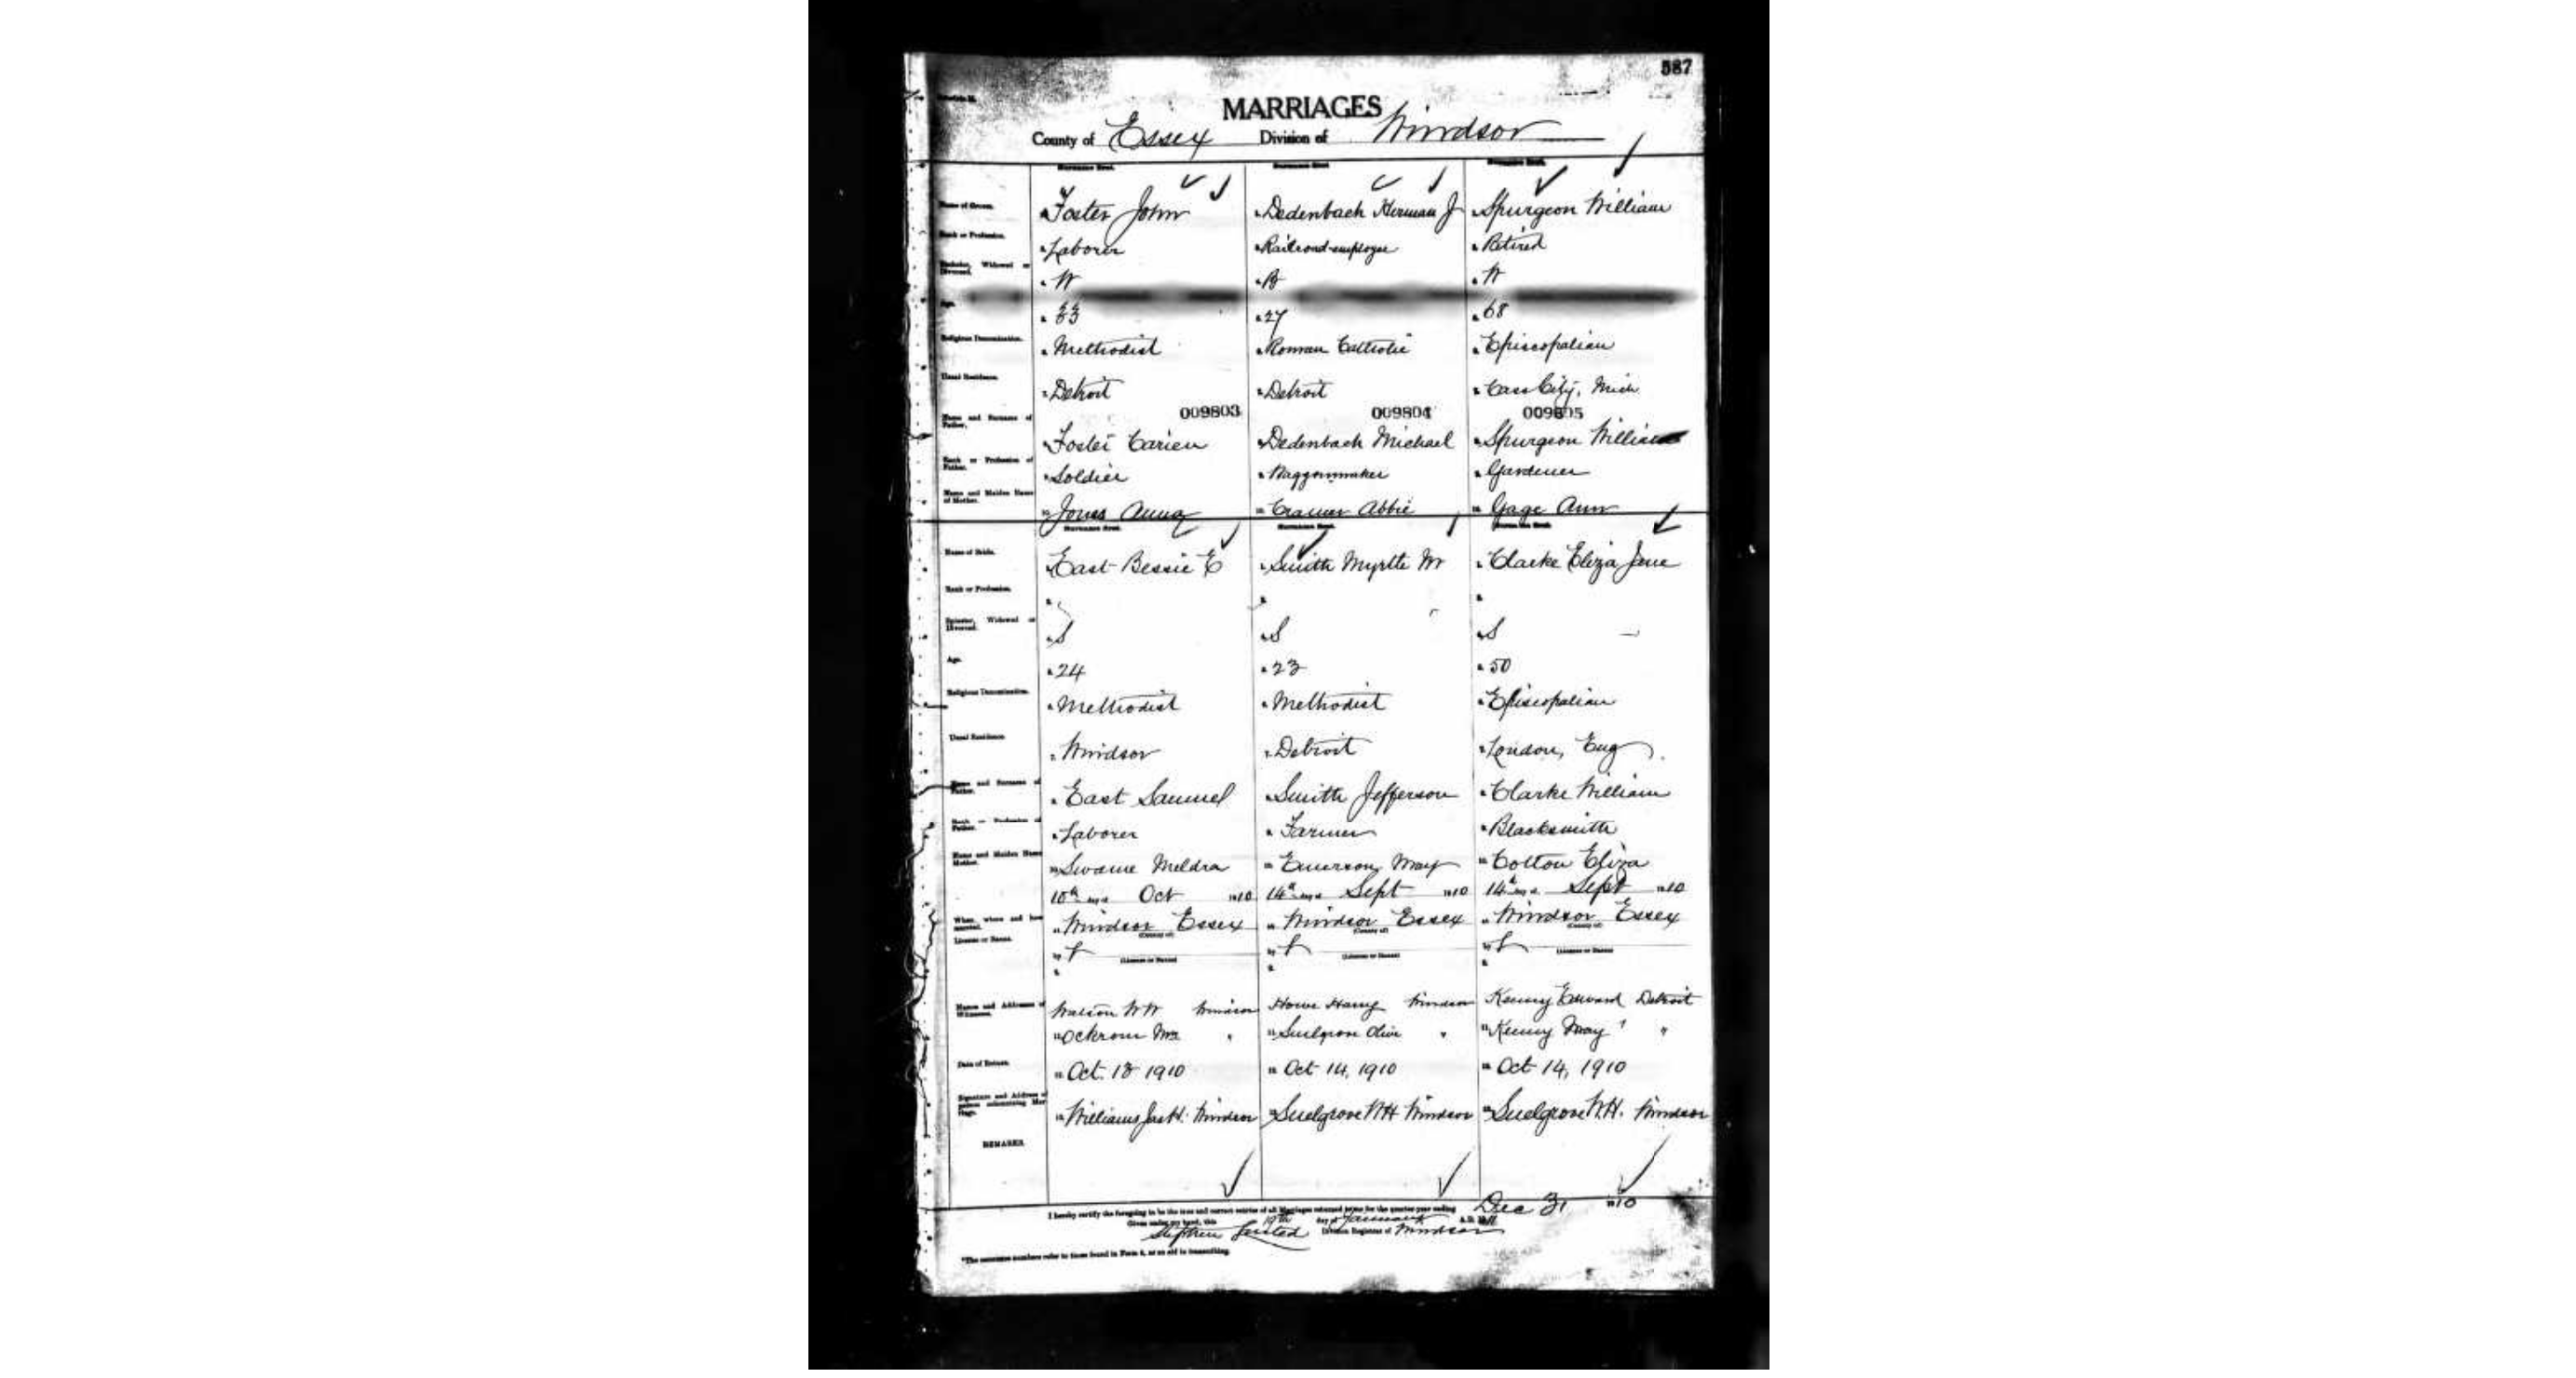 587
MARRIAGES
County of Essex Division of Windsor
Surname first. Surname first. Surname first.
Name of Groom. Foster John Dedenbach Herman J Spurgeon William
Rank or Profession. Laborer Railroad employee Retired
Bachelor, Widower or Divorced. W B W
Age. 33 27 68
Religious Denomination. Methodist Roman Catholic Episcopalian
Usual Residence. Detroit Detroit Cass City, Mich
009803 009804 009805
Name and Surname of Father. Foster Dedenbach Michael Spurgeon William
Rank or Profession of Father. Soldier Waggonmaker Gardener
Name and Maiden Name of Mother. Jones Anna Cramer Abbie Gage Ann
Surname first. Surname first. Surname first.
Name of Bride. East Bessie E Smith Myrtle M Clarke Eliza Jane
Rank or Profession.
Spinster, Widowed or Divorced. S S S
Age. 24 23 50
Religious Denomination. Methodist Methodist Episcopalian
Usual Residence. Windsor Detroit London, Eng
Name and Surname of Father. East Samuel Smith Jefferson Clarke William
Rank or Profession of Father. Laborer Farmer Blacksmith
Name and Maiden Name Mother. Meldra Emerson May Cotton Eliza
10th day of Oct 1910 14th day of Sept 1910 14th day of Sept 1910
When, where and how married. Windsor Essex Windsor Essex Windsor Essex
(County of) (County of) (County of)
License or Banns. by L by L by L
(License or Banns) (License or Banns) (License or Banns)
Names and Addresses of Witnesses. Watson W W Windsor Howe Harry Windsor Kenny Edward Detroit
Ockrom Mrs " Snelgrove Olive " Kenny May "
Date of Return. Oct. 13 1910 Oct 14, 1910 Oct 14, 1910
Signature and Address of person solemnizing Marriage. Williams Jas H. Windsor Snelgrove W H Windsor Snelgrove W.H. Windsor
REMARKS
I hereby certify the foregoing to be the true and correct entries of all Marriages returned to me for the quarter year ending Dec 31 1910
Given under my hand, this 19th day of January A.D. 1911
Stephen Lusted Division Registrar of Windsor
*The marginal numbers refer to those found in Form 5, as an aid in transcribing.